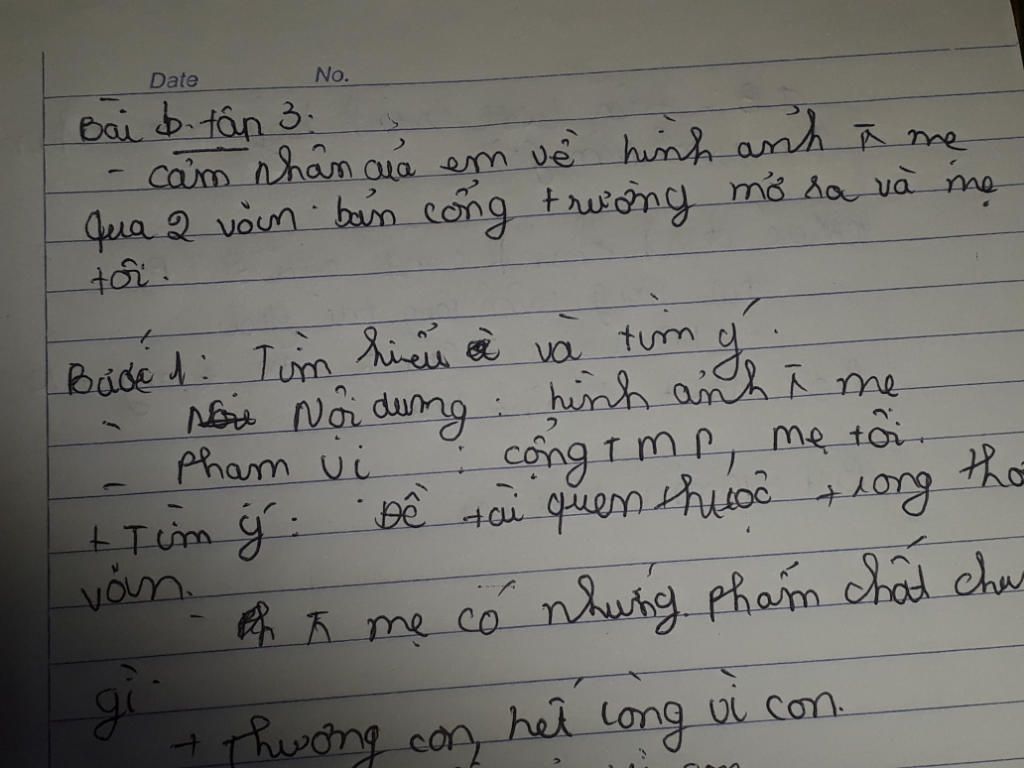 Date No.
Bài b. tân 3:
- cảm nhân của em về hình ảnh ñ mẹ
qua 2 văn bản cổng trường mở ra và mẹ
tôi.
Bước 1: Tìm hiểu đề và tìm ý.
- Nội dung: hình ảnh ñ mẹ
- Phạm vi : cổng T m r, mẹ tôi.
+ Tìm ý: Đề tài quen thuộc trong thơ
văn.
- ñ mẹ có những phẩm chất chu
gì
+ thương con, hết lòng vì con.